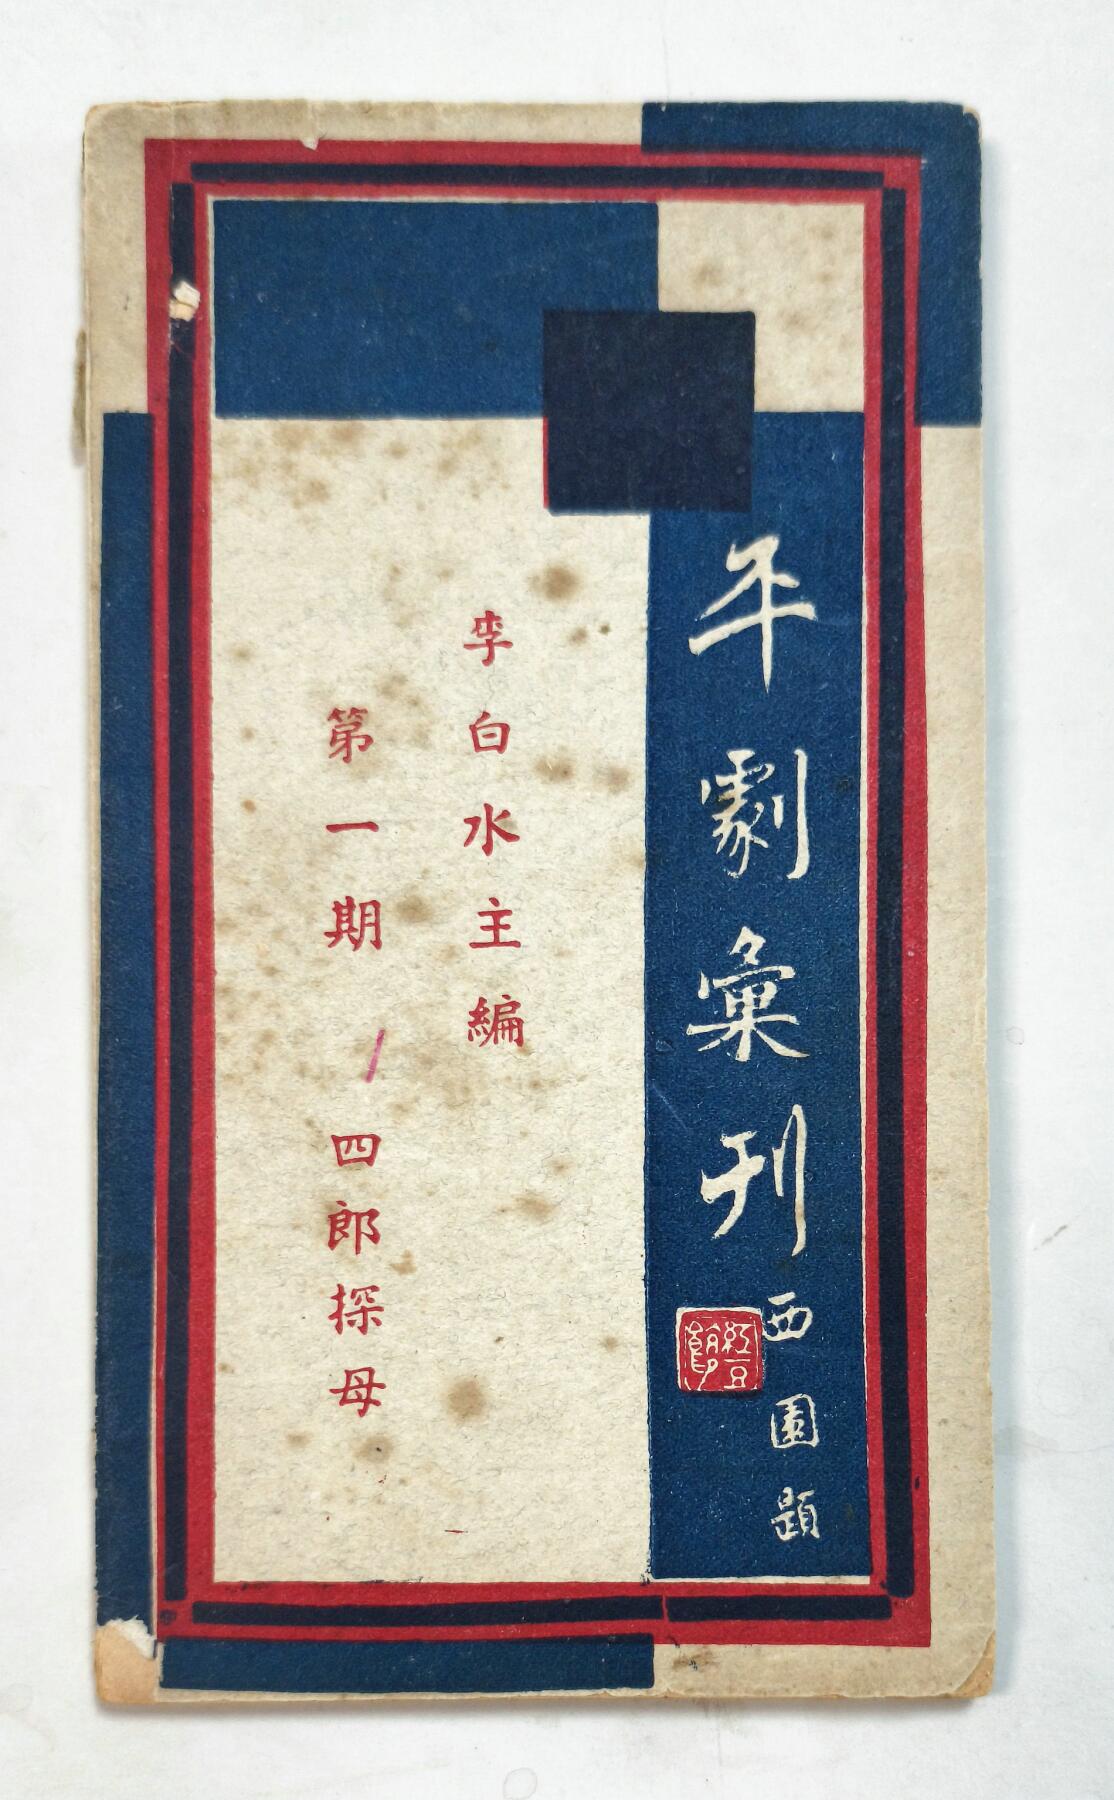 平劇彙刊
西園題
紅豆
李白水主編
第一期 四郎探母